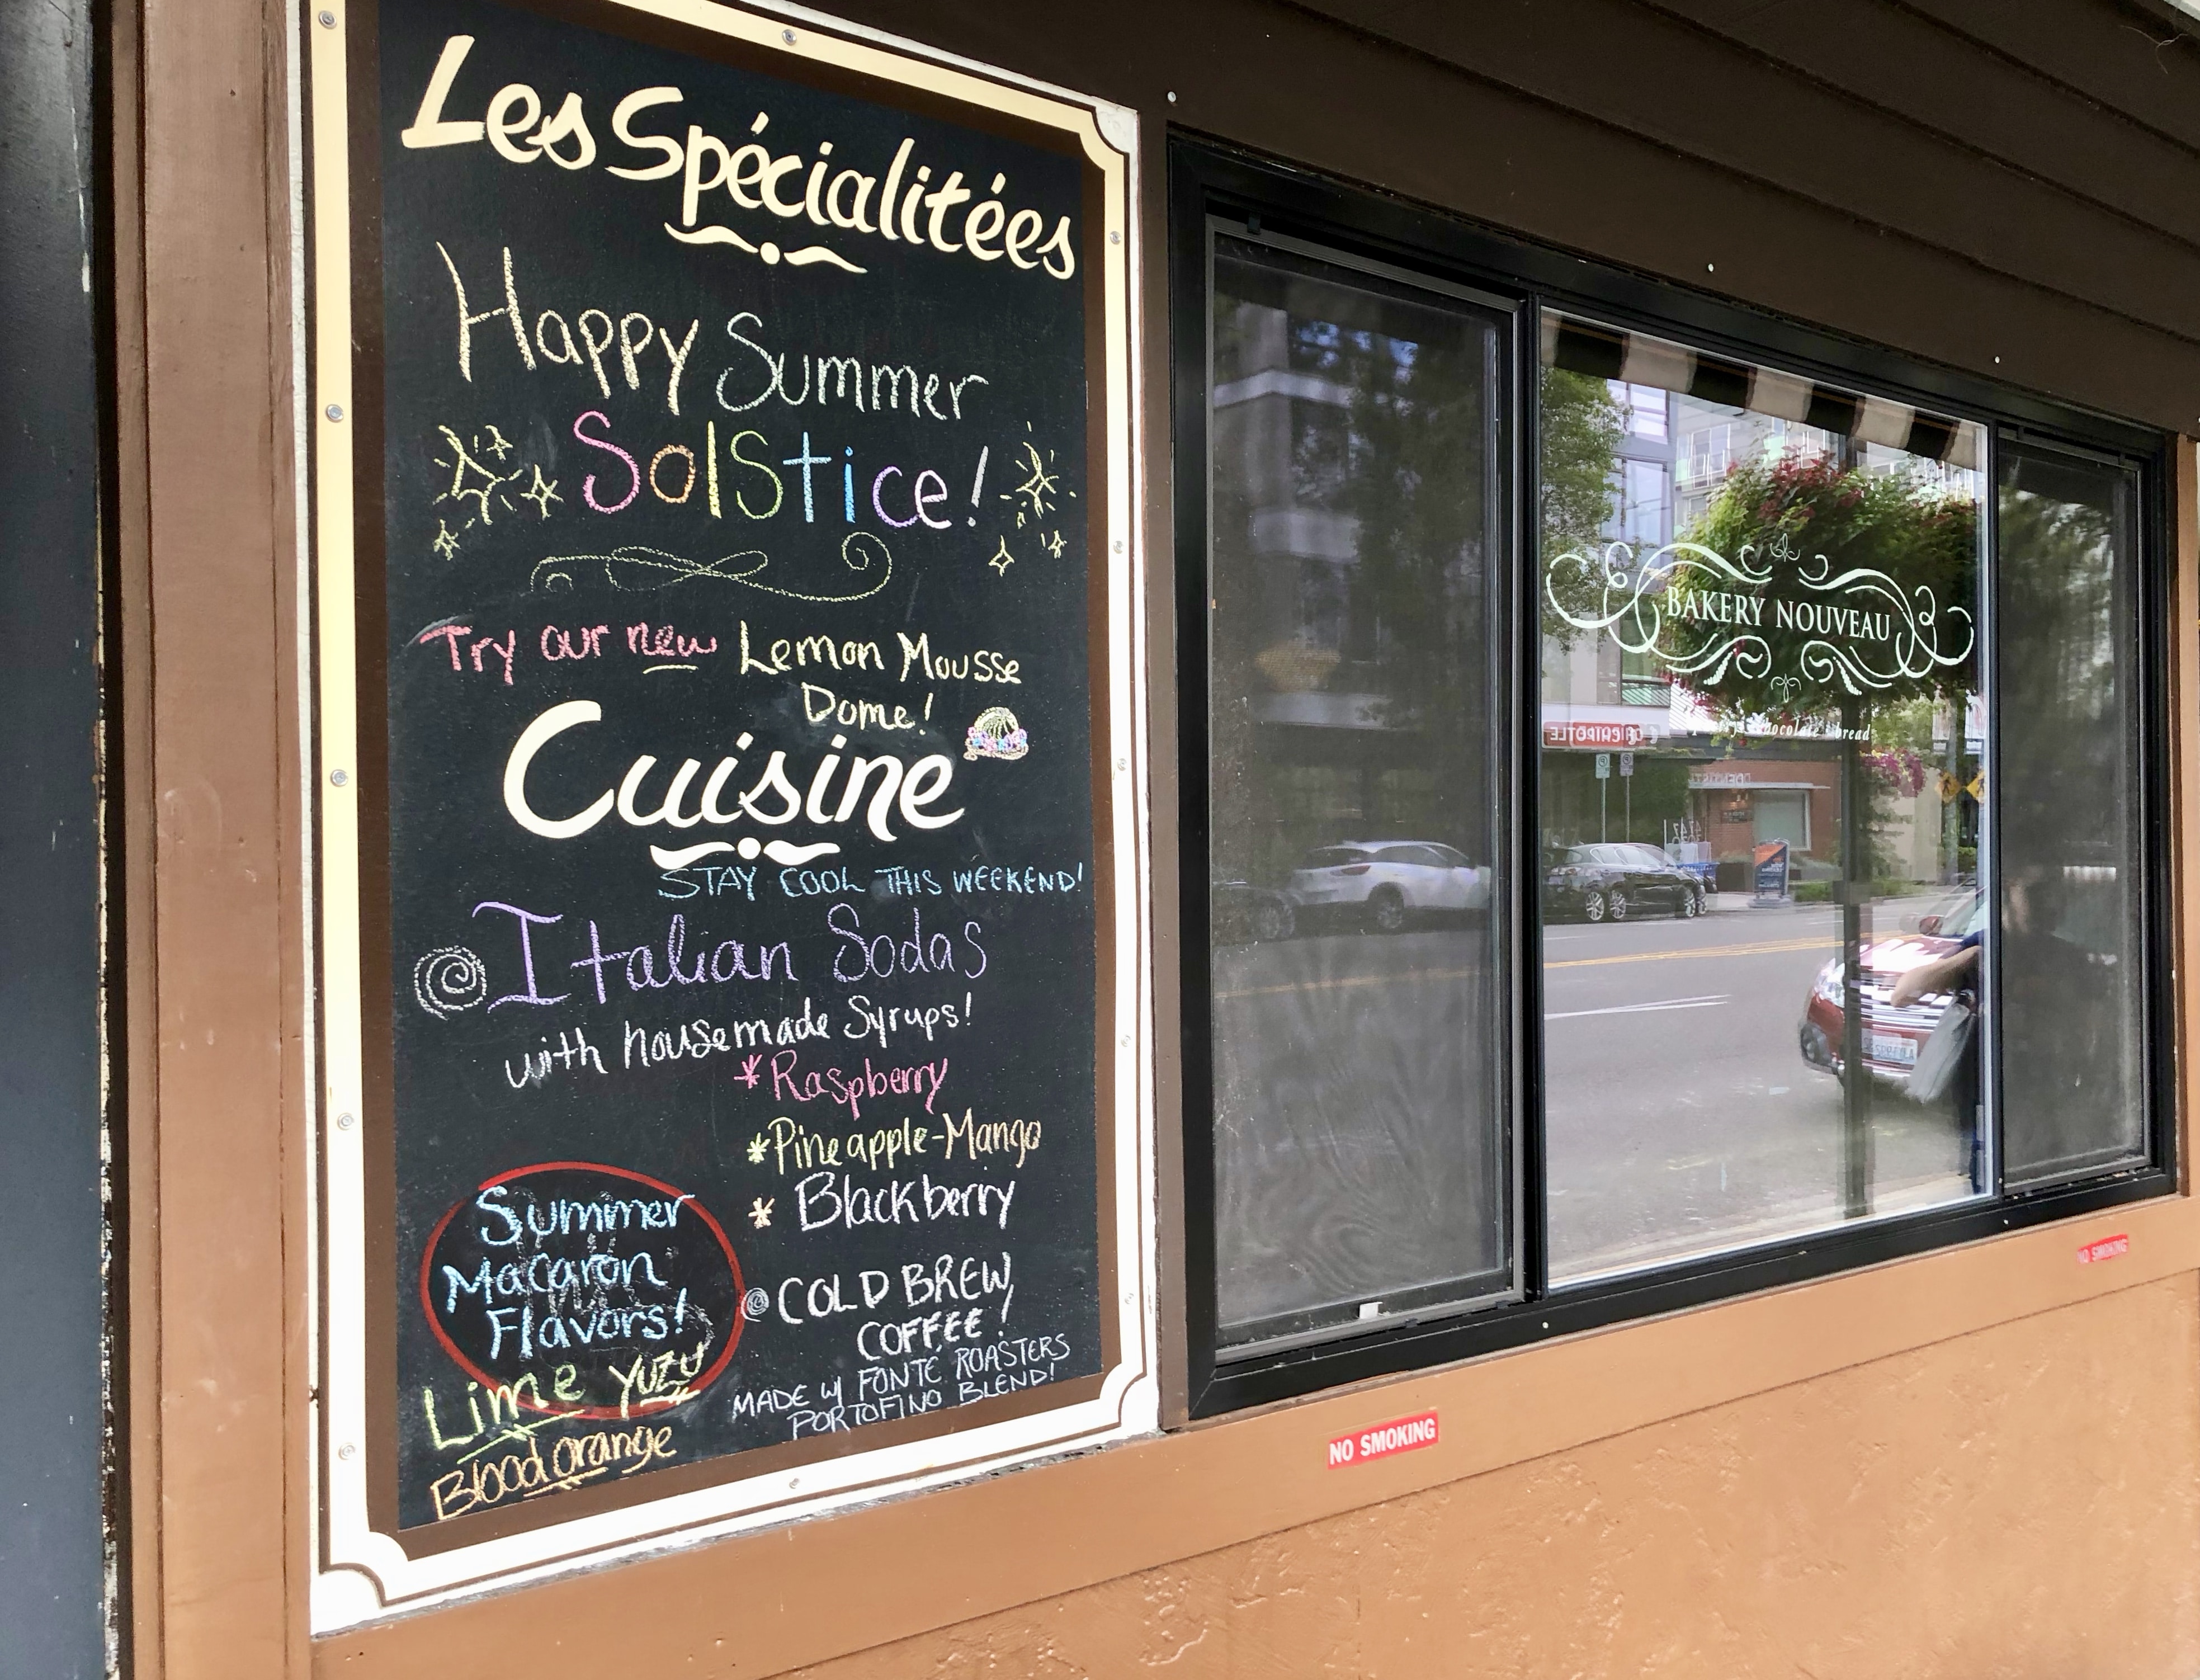 Les Spécialitées
Happy Summer
Solstice!
Try our new Lemon Mousse
Dome!
Cuisine
STAY COOL THIS WEEKEND!
Italian Sodas
with housemade Syrups!
*Raspberry
*Pineapple-Mango
* Blackberry
Summer
Macaron
Flavors!
Lime Yuzu
Blood orange
COLD BREW
COFFEE!
MADE w/ FONTÉ ROASTERS
PORTOFINO BLEND!
BAKERY NOUVEAU
chocolate bread
CHIPOTLE
NO SMOKING
NO SMOKING